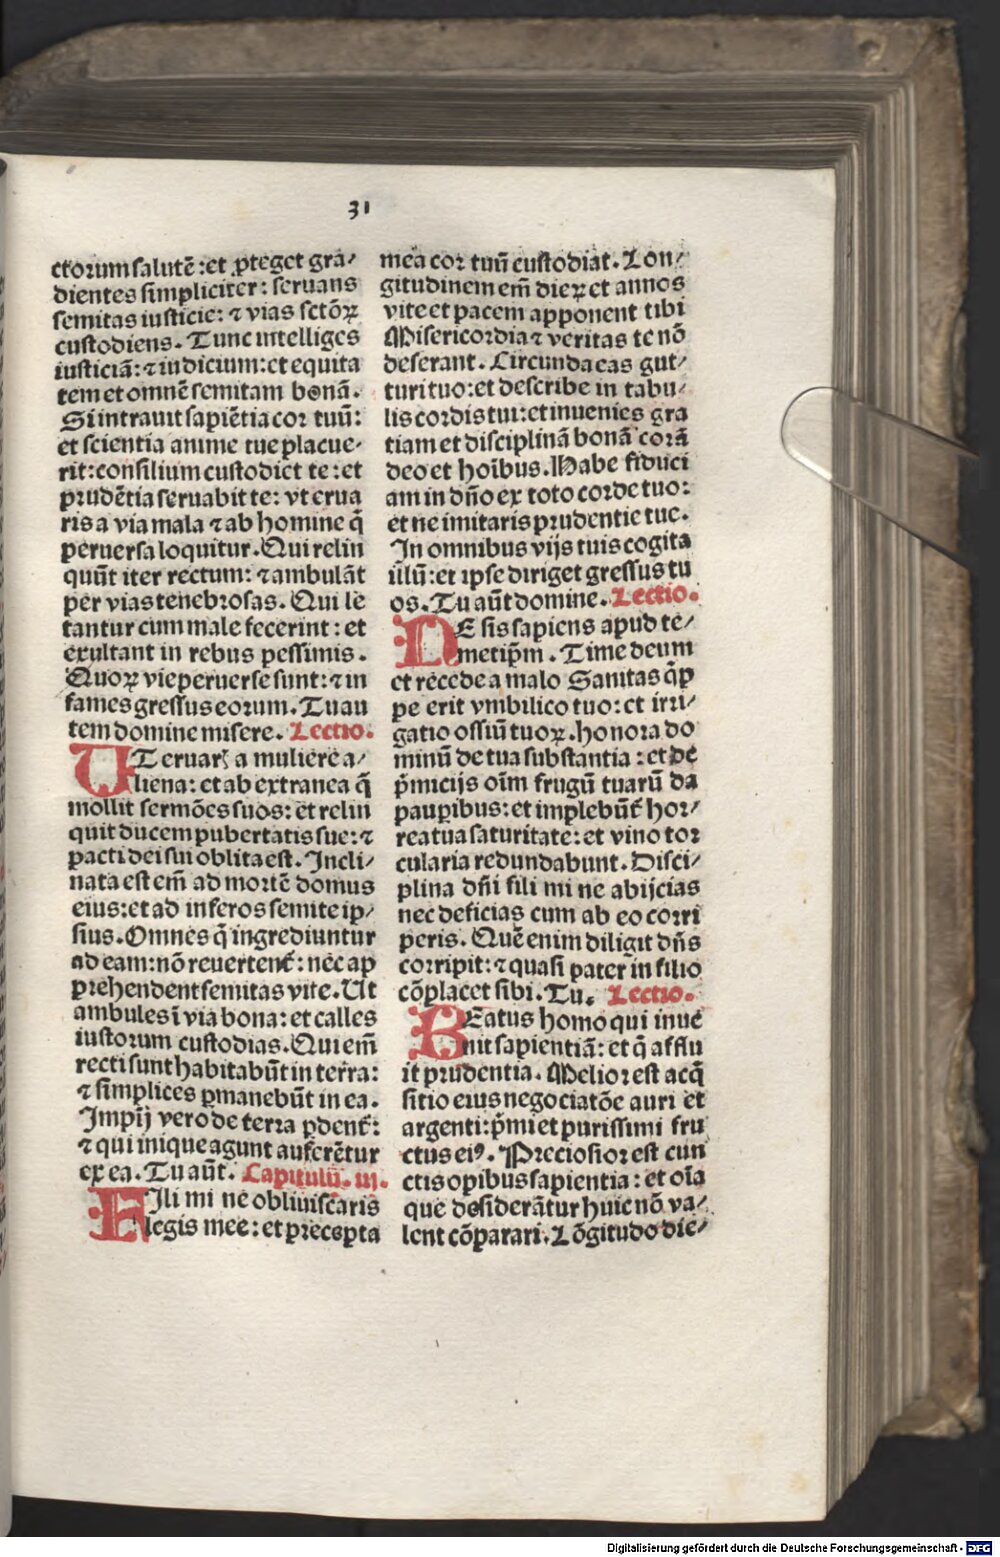 31
ctorum salutē: et ꝓteget gra/
dientes simpliciter: seruans
semitas iusticie: ⁊ vias sctōꝝ
custodiens. Tunc intelliges
iusticiā: ⁊ iudicium: et equita
tem et omnē semitam bonā.
Si intrauit sapiētia cor tuū:
et scientia anime tue placue-
rit: consilium custodiet te: et
prudētia seruabit te: vt erua
ris a via mala ⁊ ab homine q̄
peruersa loquitur. Qui relin
quūt iter rectum: ⁊ ambulāt
per vias tenebrosas. Qui le
tantur cum male fecerint: et
exultant in rebus pessimis.
Quoꝝ vie peruerse sunt: ⁊ in
fames gressus eorum. Tu au
tem domine misere. Lectio.
UT eruaris a muliere a/
liena: et ab extranea q̄
mollit sermōes suos: et relin
quit ducem pubertatis sue: ⁊
pacti dei sui oblita est. Incli/
nata est em̄ ad mortē domus
eius: et ad inferos semite ip/
sius. Omnes q̄ ingrediuntur
ad eam: nō reuertent᷑: nec ap
prehendent semitas vite. Ut
ambules ī via bona: et calles
iustorum custodias. Qui em̄
recti sunt habitabūt in terra:
⁊ simplices ꝑmanebūt in ea.
Impij vero de terra ꝑdent᷑:
⁊ qui inique agunt auferētur
ex ea. Tu aūt. Capitulū. iij.
Fili mi ne obliuiscaris
legis mee: et precepta
mea cor tuū custodiat. Lon/
gitudinem em̄ dieꝝ et annos
vite et pacem apponent tibi
Misericordia ⁊ veritas te nō
deserant. Circunda eas gut/
turi tuo: et describe in tabu/
lis cordis tui: et inuenies gra
tiam et disciplinā bonā corā
deo et hoībus. Habe fiduci
am in dn̄o ex toto corde tuo:
et ne imitaris prudentie tue.
In omnibus vijs tuis cogita
illū: et ipse diriget gressus tu
os. Tu aūt domine. Lectio.
NE sis sapiens apud te/
metip̄m. Time deum
et recede a malo Sanitas q̄p
pe erit vmbilico tuo: et irri/
gatio ossiū tuoꝝ. honora do
minū de tua substantia: et de
p̄micijs oīm frugū tuarū da
pauꝑibus: et implebūt᷑ hor/
rea tua saturitate: et vino tor
cularia redundabunt. Disci/
plina dn̄i fili mi ne abijcias
nec deficias cum ab eo corri
peris. Quē enim diligit dn̄s
corripit: ⁊ quasi pater in filio
cōplacet sibi. Tu. Lectio.
BEatus homo qui inue
nit sapientiā: et q̄ afflu
it prudentia. Melior est acq̄
sitio eius negociatōe auri et
argenti: p̄mi et purissimi fru
ctus eiꝰ. Preciosior est cun
ctis opibus sapientia: et oīa
que desiderātur huic nō va/
lent cōparari. Lōgitudo die/
Digitalisierung gefördert durch die Deutsche Forschungsgemeinschaft - DFG